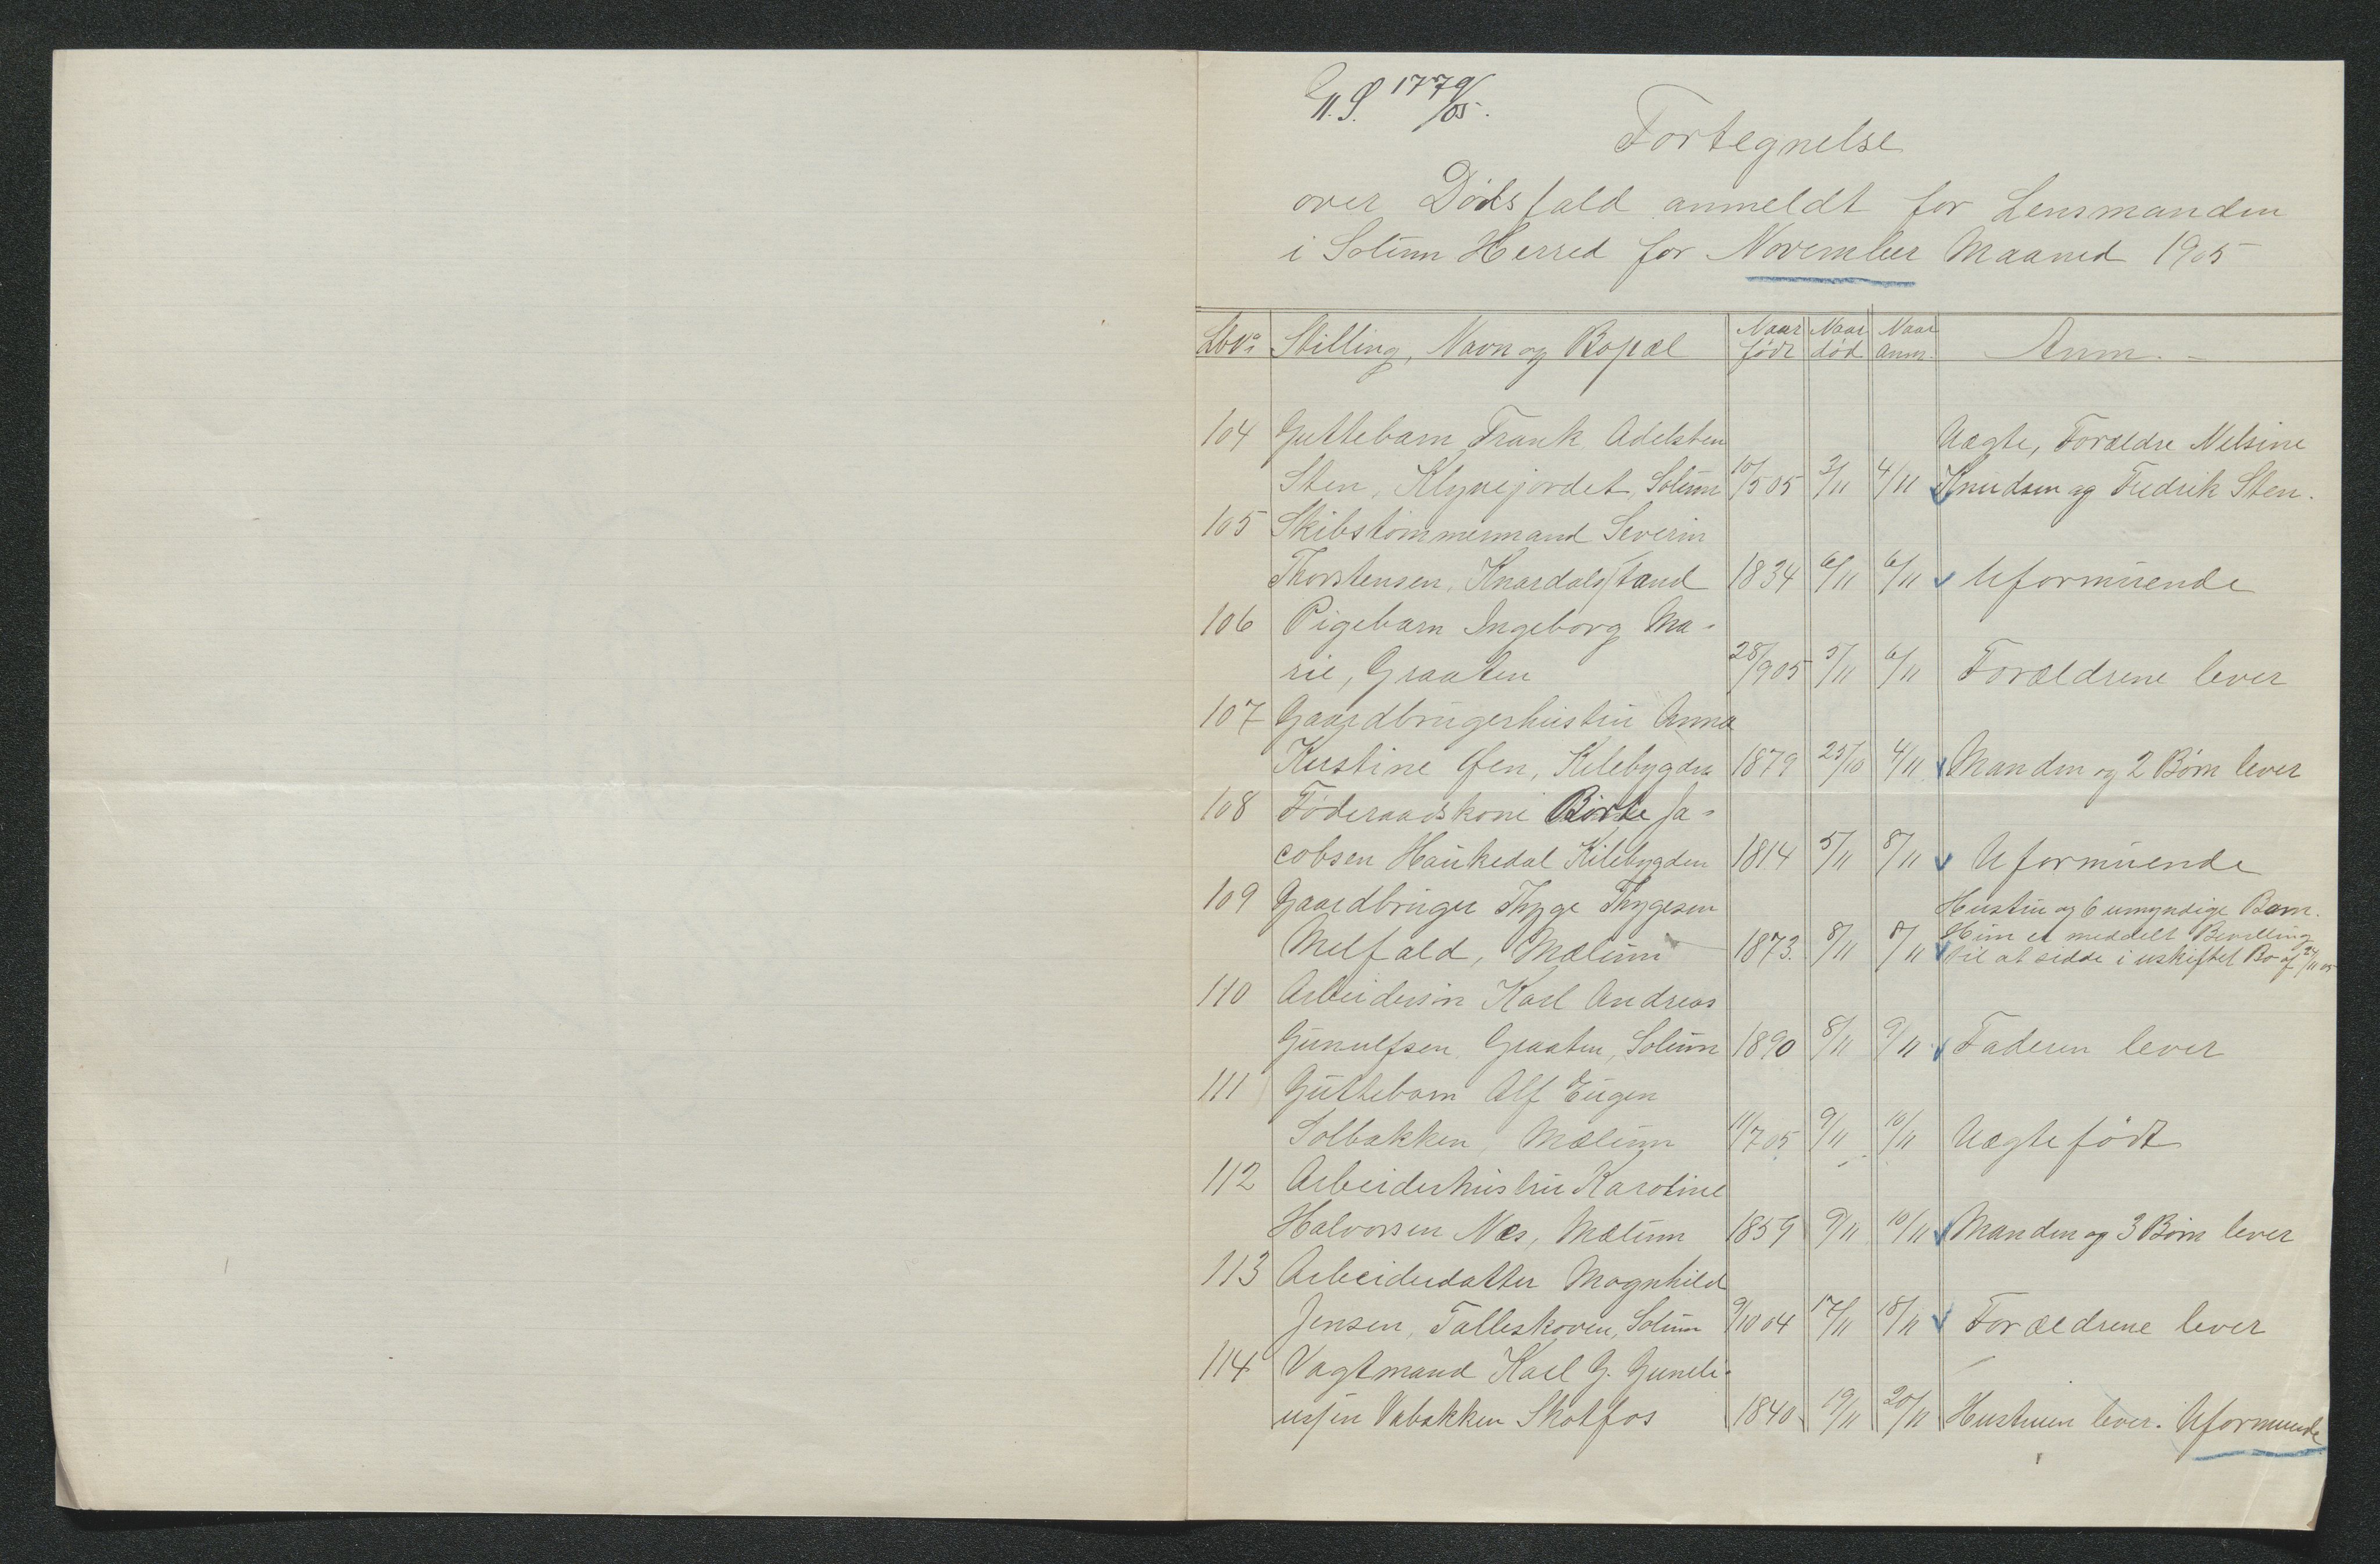 G.S. 1779/05.
Fortegnelse
over Dødsfald anmeldt for Lensmanden
i Solum Herred for November Maaned 1905
Lbno Stilling, Navn og Bopæl Naar født Naar død Naar anm. Anm.
104 Guttebarn Frank Adelsten Uægte, Forældre Nilsine
Sten, Klyvejordet, Solum 10/5 05 3/11 4/11 Knudsen og Fredrik Sten.
105 Skibstømmermand Severin
Thorstensen, Knardalstrand 1834 6/11 6/11 Uformuende
106 Pigebarn Ingeborg Ma-
rie, Graaten 28/9 05 5/11 6/11 Forældrene lever
107 Gaardbrugerhustru Anna
Kirstine Øfen, Kilebygden 1879 25/10 4/11 Manden og 2 Børn lever
108 Føderaadskone Børte Ja-
cobsen Haukedal Kilebygden 1814 5/11 8/11 Uformuende
109 Gaardbruger Thyge Thygesen Hustru og 6 umyndige Barn.
Melfald, Mælum 1873. 8/11 8/11 Hun er meddelt Bevilling
til at sidde i uskiftet Bo af 24/11 05
110 Arbeidersøn Karl Andreas
Gunulfsen, Graaten, Solum 1890 8/11 9/11 Faderen lever
111 Guttebarn Alf Eugen
Solbakken, Mælum 11/7 05 9/11 10/11 Uægte født
112 Arbeiderhustru Karoline
Halvorsen Næs, Mælum 1859 9/11 10/11 Manden og 3 Børn lever
113 Arbeiderdatter Magnhild
Jensen, Falleskoven, Solum 9/10 04 17/11 18/11 Forældrene lever
114 Vagtmand Karl G. Guneli-
ussen Vabakken Skotfos 1840 19/11 20/11 Hustruen lever. Uformuende